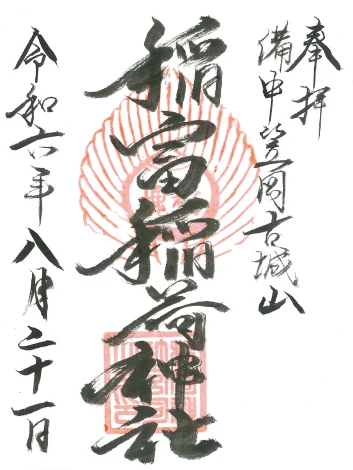 奉拝
備中笠岡古城山
稲富稲荷神社
令和六年八月二十一日